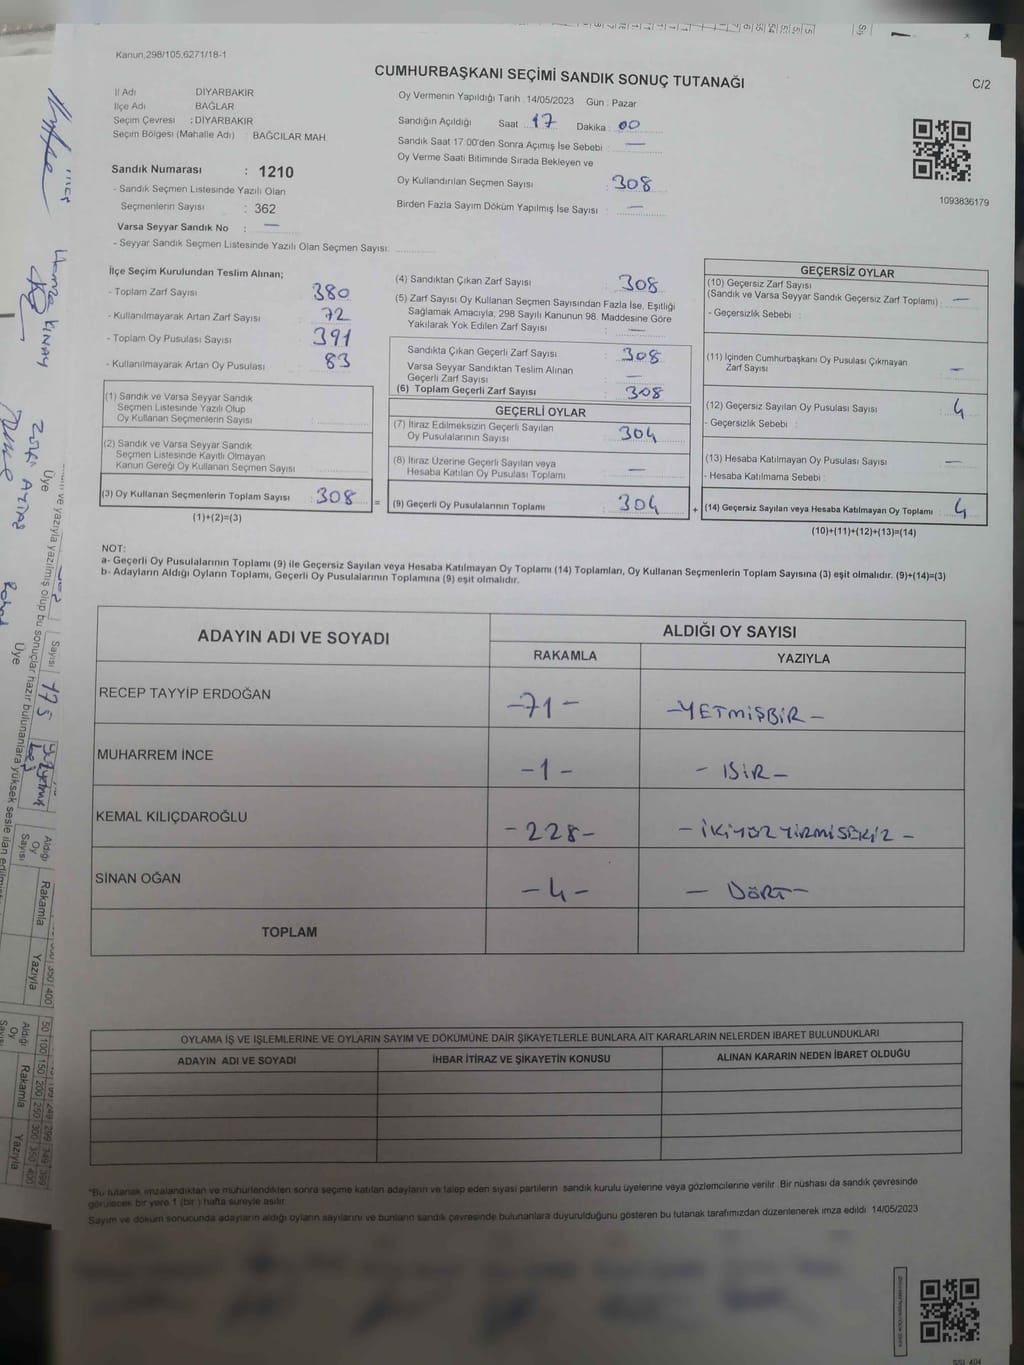 Kanun.298/105,6271/18-1
CUMHURBAŞKANI SEÇİMİ SANDIK SONUÇ TUTANAĞI
C/2
İl Adı DİYARBAKIR
İlçe Adı BAĞLAR
Seçim Çevresi : DİYARBAKIR
Seçim Bölgesi (Mahalle Adı) : BAĞCILAR MAH
Sandık Numarası : 1210
- Sandık Seçmen Listesinde Yazılı Olan
Seçmenlerin Sayısı : 362
Varsa Seyyar Sandık No : —
- Seyyar Sandık Seçmen Listesinde Yazılı Olan Seçmen Sayısı:
Oy Vermenin Yapıldığı Tarih : 14/05/2023 Gün : Pazar
Sandığın Açıldığı Saat 17 Dakika : 00
Sandık Saat 17:00'den Sonra Açımış İse Sebebi : —
Oy Verme Saati Bitiminde Sırada Bekleyen ve
Oy Kullandırılan Seçmen Sayısı : 308
Birden Fazla Sayım Döküm Yapılmış İse Sayısı : —
1093836179
İlçe Seçim Kurulundan Teslim Alınan;
- Toplam Zarf Sayısı 380
- Kullanılmayarak Artan Zarf Sayısı : 72
- Toplam Oy Pusulası Sayısı 391
- Kullanılmayarak Artan Oy Pusulası : 83
(1) Sandık ve Varsa Seyyar Sandık
Seçmen Listesinde Yazılı Olup
Oy Kullanan Seçmenlerin Sayısı
(2) Sandık ve Varsa Seyyar Sandık
Seçmen Listesinde Kayıtlı Olmayan
Kanun Gereği Oy Kullanan Seçmen Sayısı
(3) Oy Kullanan Seçmenlerin Toplam Sayısı : 308 =
(1)+(2)=(3)
(4) Sandıktan Çıkan Zarf Sayısı : 308
(5) Zarf Sayısı Oy Kullanan Seçmen Sayısından Fazla İse, Eşitliği
Sağlamak Amacıyla, 298 Sayılı Kanunun 98. Maddesine Göre
Yakılarak Yok Edilen Zarf Sayısı : —
Sandıkta Çıkan Geçerli Zarf Sayısı : 308
Varsa Seyyar Sandıktan Teslim Alınan
Geçerli Zarf Sayısı —
(6) Toplam Geçerli Zarf Sayısı : 308
GEÇERLİ OYLAR
(7) İtiraz Edilmeksizin Geçerli Sayılan
Oy Pusulalarının Sayısı : 304
(8) İtiraz Üzerine Geçerli Sayılan veya
Hesaba Katılan Oy Pusulası Toplamı : —
(9) Geçerli Oy Pusulalarının Toplamı : 304 +
GEÇERSİZ OYLAR
(10) Geçersiz Zarf Sayısı
(Sandık ve Varsa Seyyar Sandık Geçersiz Zarf Toplamı) : —
- Geçersizlik Sebebi :
(11) İçinden Cumhurbaşkanı Oy Pusulası Çıkmayan
Zarf Sayısı : —
(12) Geçersiz Sayılan Oy Pusulası Sayısı : 4
- Geçersizlik Sebebi :
(13) Hesaba Katılmayan Oy Pusulası Sayısı : —
- Hesaba Katılmama Sebebi :
(14) Geçersiz Sayılan veya Hesaba Katılmayan Oy Toplamı : 4
(10)+(11)+(12)+(13)=(14)
NOT:
a- Geçerli Oy Pusulalarının Toplamı (9) ile Geçersiz Sayılan veya Hesaba Katılmayan Oy Toplamı (14) Toplamları, Oy Kullanan Seçmenlerin Toplam Sayısına (3) eşit olmalıdır. (9)+(14)=(3)
b- Adayların Aldığı Oyların Toplamı, Geçerli Oy Pusulalarının Toplamına (9) eşit olmalıdır.
ADAYIN ADI VE SOYADI
ALDIĞI OY SAYISI
RAKAMLA YAZIYLA
RECEP TAYYİP ERDOĞAN -71- -YETMİŞBİR-
MUHARREM İNCE -1- - BİR-
KEMAL KILIÇDAROĞLU -228- -İKİYÜZ YİRMİSEKİZ -
SİNAN OĞAN -4- - DÖRT-
TOPLAM
OYLAMA İŞ VE İŞLEMLERİNE VE OYLARIN SAYIM VE DÖKÜMÜNE DAİR ŞİKAYETLERLE BUNLARA AİT KARARLARIN NELERDEN İBARET BULUNDUKLARI
ADAYIN ADI VE SOYADI İHBAR İTİRAZ VE ŞİKAYETİN KONUSU ALINAN KARARIN NEDEN İBARET OLDUĞU
*Bu tutanak imzalandıktan ve mühürlendikten sonra seçime katılan adayların ve talep eden siyasi partilerin sandık kurulu üyelerine veya gözlemcilerine verilir. Bir nüshası da sandık çevresinde
görülecek bir yere 1 (bir ) hafta süreyle asılır.
Sayım ve döküm sonucunda adayların aldığı oyların sayılarını ve bunların sandık çevresinde bulunanlara duyurulduğunu gösteren bu tutanak tarafımızdan düzenlenerek imza edildi. 14/05/2023
Üye
Üye
Sayısı 175
Aldığı Oy Sayısı
Rakamla Yazıyla
Aldığı Oy
Rakamla Yazıyla